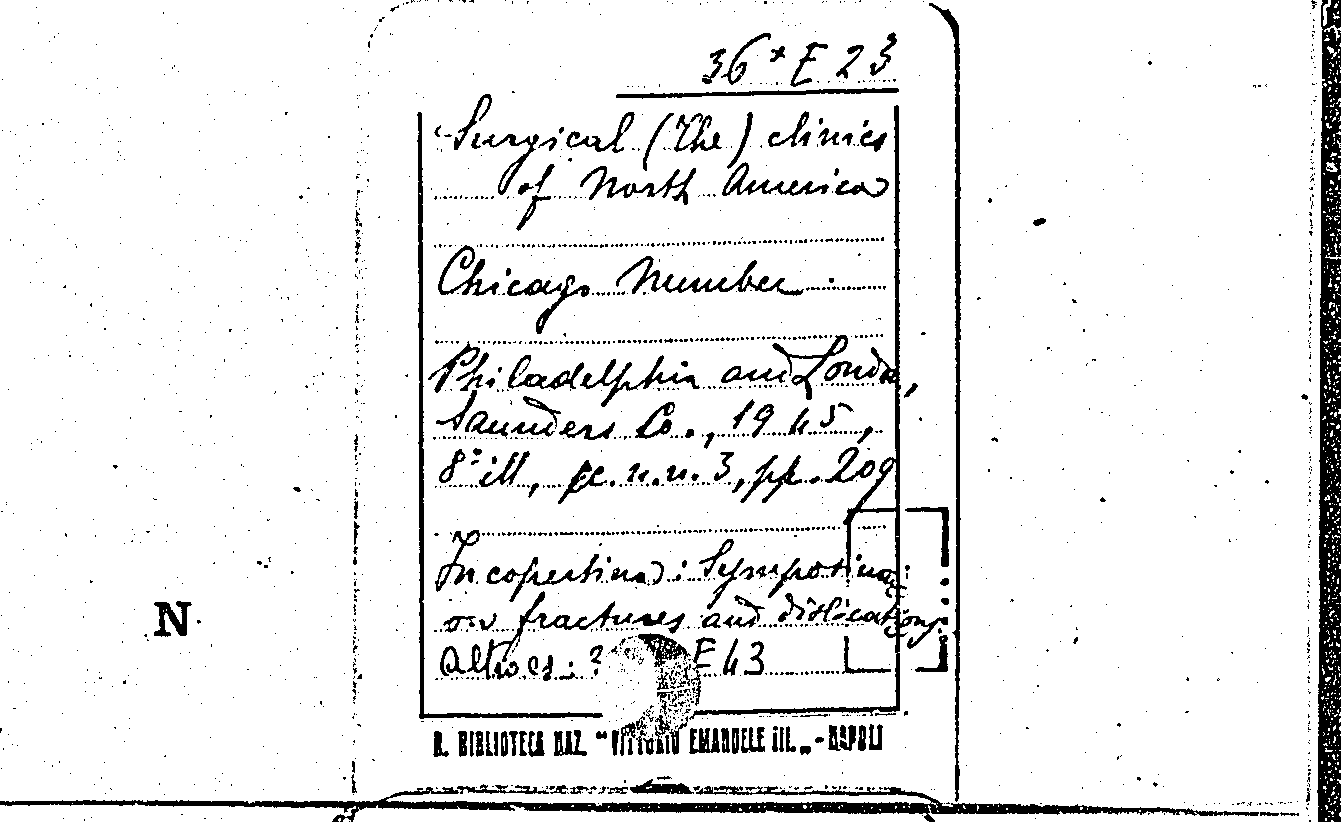 36* E 23
Surgical (The) clinics
of North America
Chicago Number.
Philadelphia and London,
Saunders Co., 1945,
8° ill, pc. n.n. 3, pp. 209
In copertina: Symposium
on fractures and dislocations.
N
Altro es.: E 43
R. BIBLIOTECA NAZ. "VITTORIO EMANUELE III." - NAPOLI